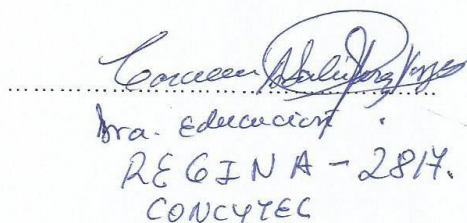 Carmen
Dra. Educación.
REGINA - 2817.
CONCYTEC